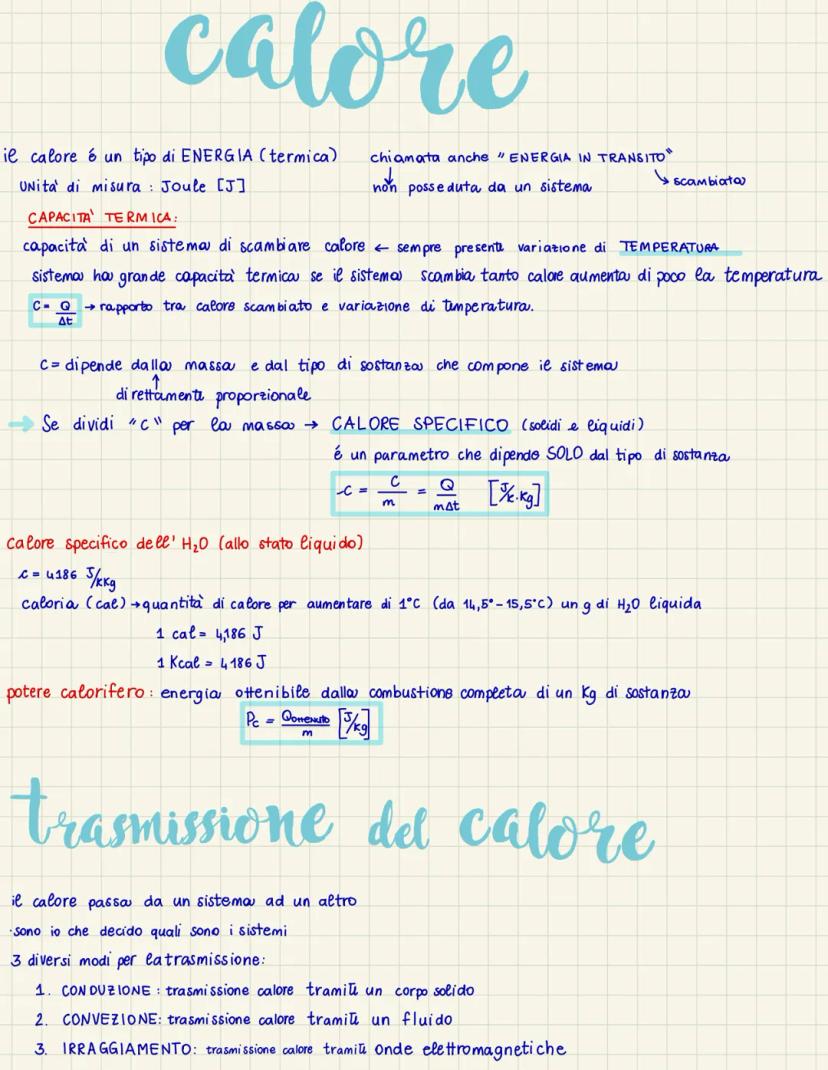 calore
il calore é un tipo di ENERGIA (termica) chiamata anche "ENERGIA IN TRANSITO"
Unita' di misura : Joule [J] non posseduta da un sistema scambiata
CAPACITA' TERMICA:
capacità di un sistema di scambiare calore ← sempre presente variazione di TEMPERATURA
sistema ha grande capacità termica se il sistema scambia tanto calore aumenta di poco la temperatura
C = Q/Δt → rapporto tra calore scambiato e variazione di temperatura.
C = dipende dalla massa e dal tipo di sostanza che compone il sistema
↑
direttamente proporzionale
→ Se dividi "C" per la massa → CALORE SPECIFICO (solidi e liquidi)
é un parametro che dipende SOLO dal tipo di sostanza
c = C/m = Q/mΔt [J/K·Kg]
Calore specifico dell' H₂O (allo stato liquido)
c = 4186 J/KKg
caloria (cal) → quantità di calore per aumentare di 1°C (da 14,5°-15,5°C) un g di H₂O liquida
1 cal = 4,186 J
1 Kcal = 4186 J
potere calorifero : energia ottenibile dalla combustione completa di un Kg di sostanza
Pc = Qottenuto/m [J/Kg]
trasmissione del calore
il calore passa da un sistema ad un altro
·sono io che decido quali sono i sistemi
3 diversi modi per la trasmissione:
1. CONDUZIONE : trasmissione calore tramite un corpo solido
2. CONVEZIONE: trasmissione calore tramite un fluido
3. IRRAGGIAMENTO: trasmissione calore tramite onde elettromagnetiche